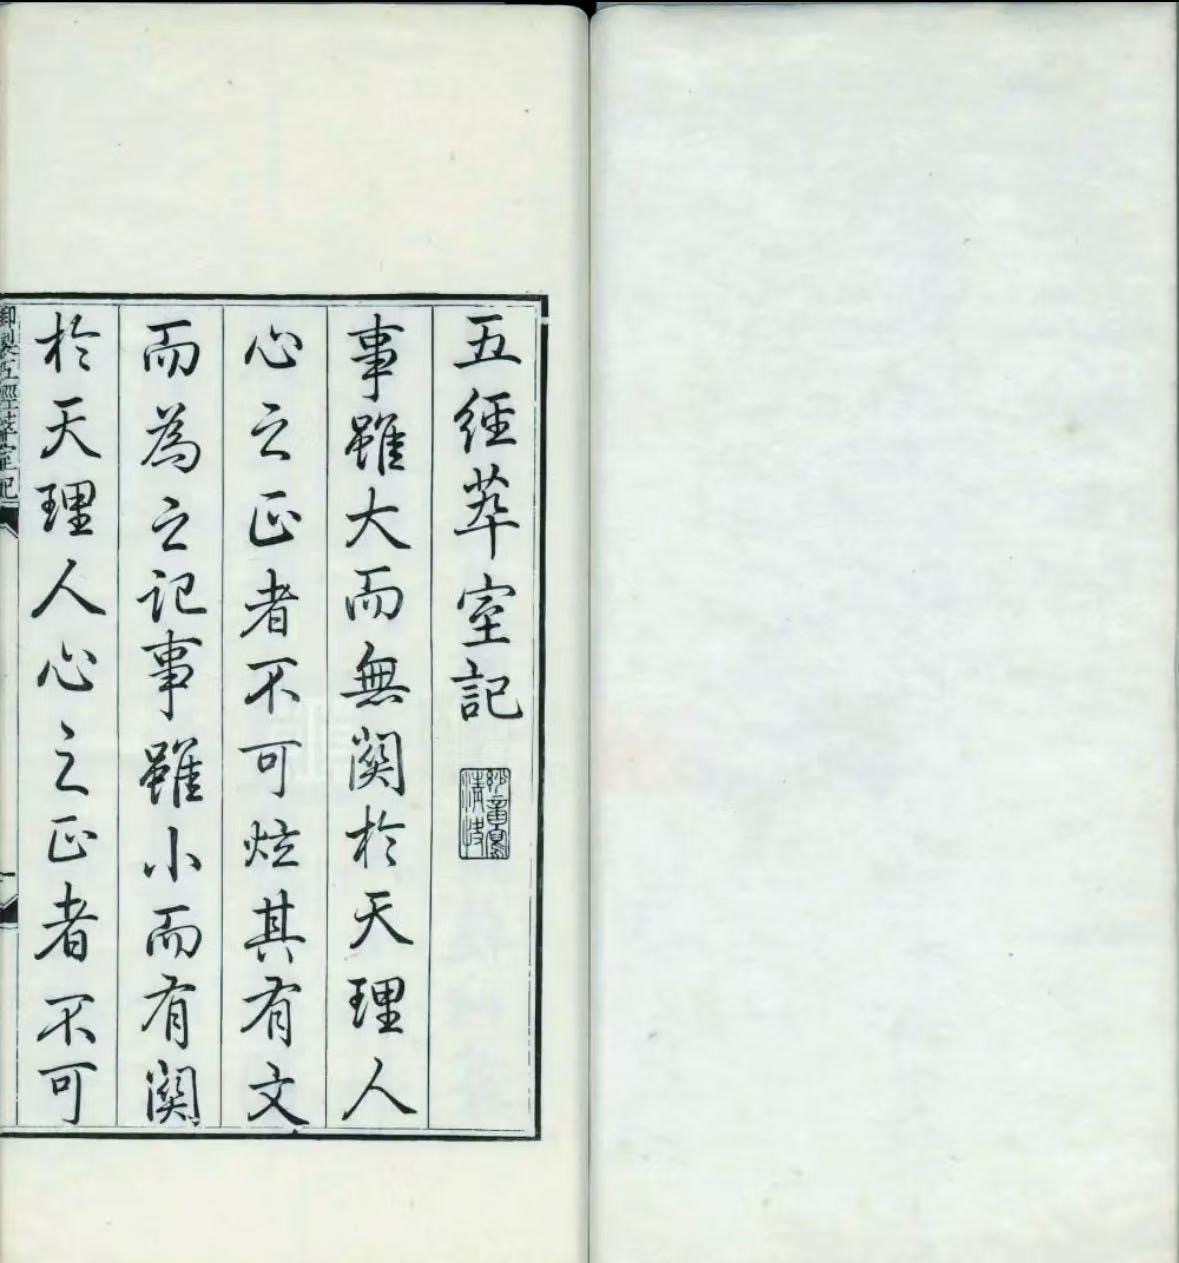 五經萃室記
事雖大而無闗於天理人
心之正者不可炫其有文
而為之記事雖小而有闗
於天理人心之正者不可
御製五經萃室記
一